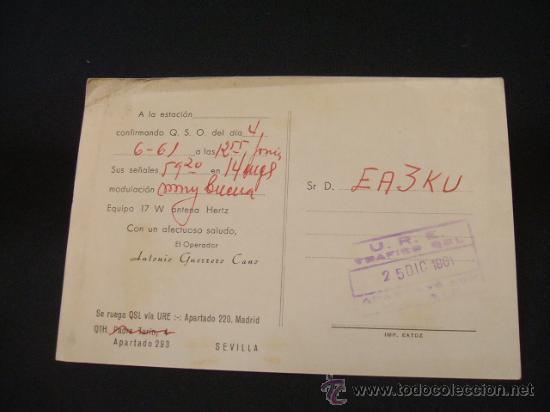 A la estación
confirmando Q. S. O. del día 4
6-61 a las 1255
Sus señales 5920 en 14
modulación muy buena
Equipo 17 W antena Hertz
Con un afectuoso saludo,
El Operador
Antonio Guerrero Cano
Se ruega QSL vía URE :-: Apartado 220. Madrid
QTH. Padre Tarín, 4
Apartado 293 SEVILLA
Sr D. EA3KU
U. R. E.
TRAFICO QSL
25 DIC 1961
IMP. EXTOZ
www.todocoleccion.net